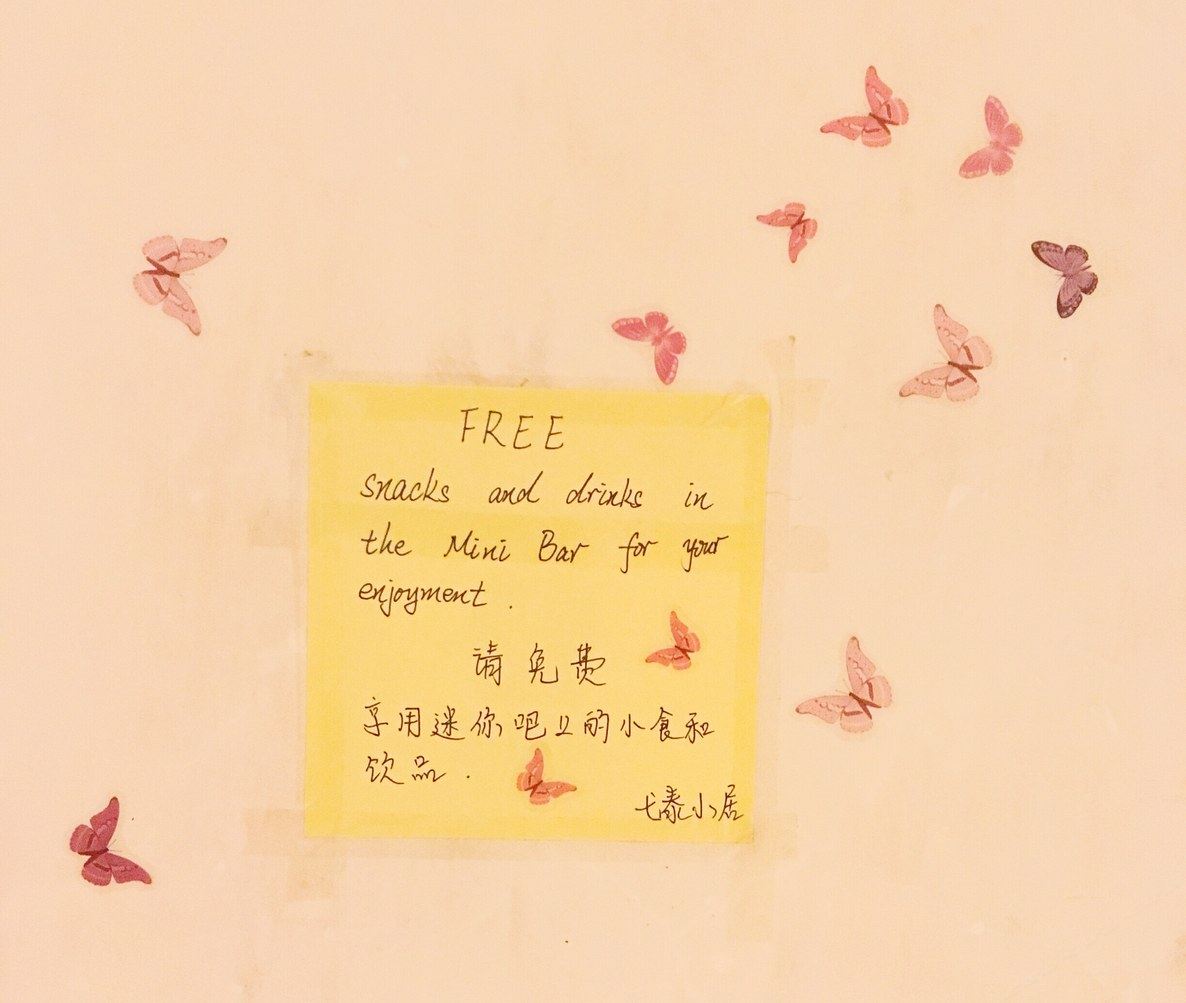 FREE
snacks and drinks in
the Mini Bar for your
enjoyment.
请免费
享用迷你吧上的小食和
饮品.
泰小居